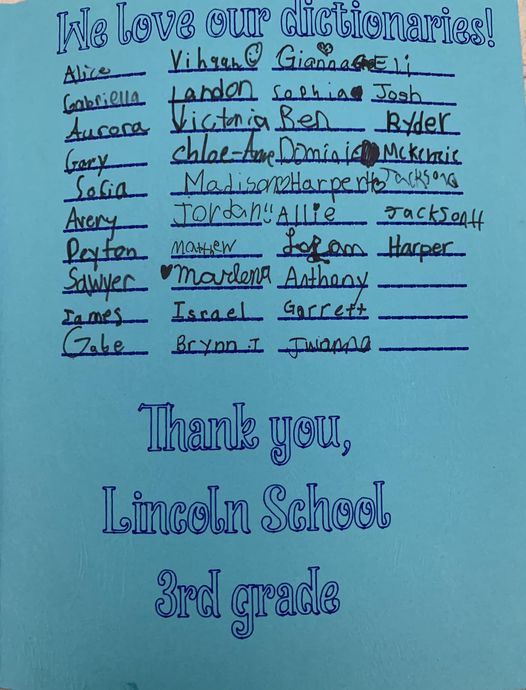 We love our dictionaries!
Alice Vihaan Gianna Eli
Gabriella Landon Sophia Josh
Aurora Victoria Ben Ryder
Gary Chloe-Anne Dominic McKenzie
Sofia Madison Harper Jackson
Avery Jordan!! Allie Jackson H
Peyton Matthew Logan Harper
Sawyer Marlena Anthony
James Israel Garrett
Gabe Brynn.I Jwanna
Thank you,
Lincoln School
3rd grade